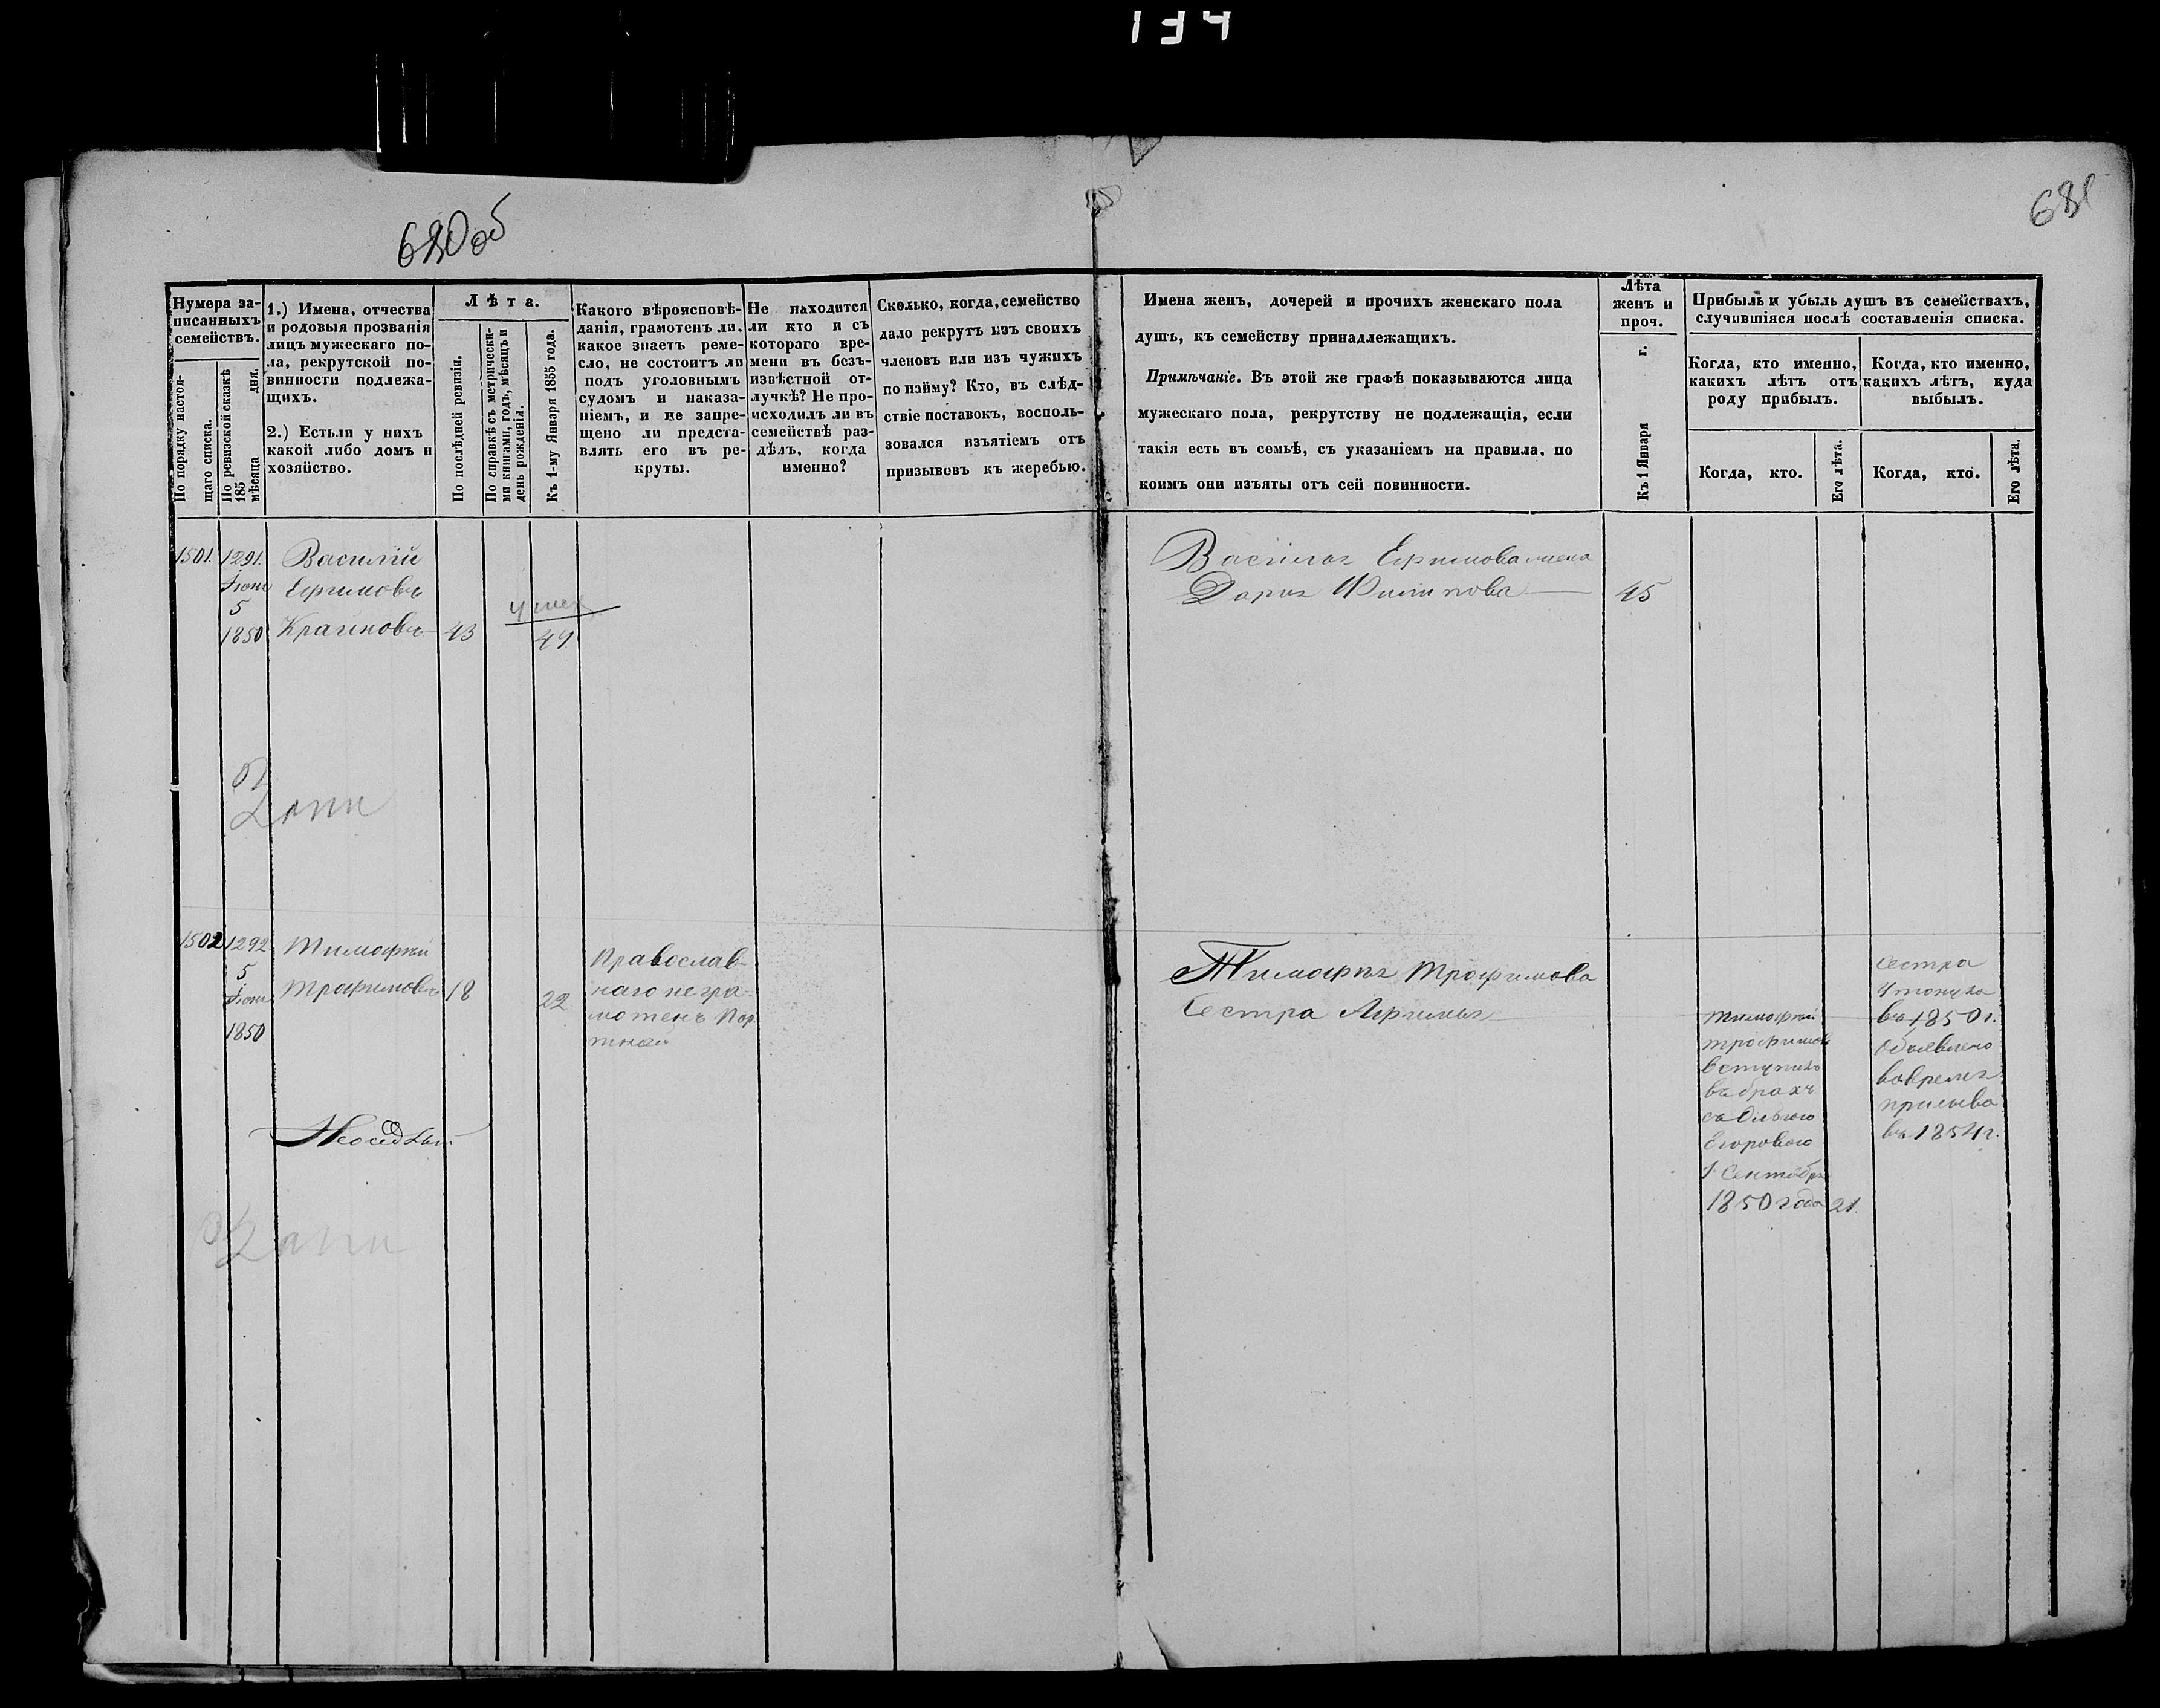 134
680 об
681
Нумера за-
писанныхъ
семействъ.
По порядку настоя-
щаго списка.
По ревизской сказкѣ
185 дня.
мѣсяца
1.) Имена, отчества
и родовыя прозванія
лицъ мужескаго по-
ла, рекрутской по-
винности подлежа-
щихъ.
2.) Есть ли у нихъ
какой либо домъ и
хозяйство.
Лѣта.
По послѣдней ревизіи.
По справкѣ съ метрически-
ми книгами, годъ, мѣсяцъ и
день рожденія.
Къ 1-му Января 1855 года.
Какого вѣроисповѣ-
данія, грамотенъ ли,
какое знаетъ реме-
сло, не состоитъ ли
подъ уголовнымъ
судомъ и наказа-
ніемъ, и не запре-
щено ли предста-
влять его въ ре-
круты.
Не находится
ли кто и съ
котораго вре-
мени въ безъ-
извѣстной от-
лучкѣ? Не про-
исходилъ ли въ
семействѣ раз-
дѣлъ, когда
именно?
Сколько, когда, семейство
дало рекрутъ изъ своихъ
членовъ или изъ чужихъ
по найму? Кто, въ слѣд-
ствіе поставокъ, восполь-
зовался изъятіемъ отъ
призывовъ къ жеребью.
Имена женъ, дочерей и прочихъ женскаго пола
душъ, къ семейству принадлежащихъ.
Примѣчаніе. Въ этой же графѣ показываются лица
мужескаго пола, рекрутству не подлежащія, если
такія есть въ семьѣ, съ указаніемъ на правила, по
коимъ они изъяты отъ сей повинности.
Лѣта
женъ и
проч.
Къ 1 Января г.
Прибыль и убыль душъ въ семействахъ,
случившіяся послѣ составленія списка.
Когда, кто именно,
какихъ лѣтъ отъ
роду прибылъ.
Когда, кто именно,
какихъ лѣтъ, куда
выбылъ.
Когда, кто.
Его лѣта.
Когда, кто.
Его лѣта.
1501. 1291. Василій
Іюня Ефимовъ
5
1850 Крагиновъ 43 47
Василья Ефимова жена
Дарья Филипова 45
1502 1292 Тимофей
5 Трофимовъ 18 22
Іюня
1850
Православ-
наго негра-
мотенъ Пор-
тной
Тимофея Трофимова
Сестра Афимья
Тимофей
Трофимовъ
вступилъ
въ бракъ
съ Ольгою
Егоровою
1 Сентября
1850 года 21.
сестра
утонула
въ 1850 г.
Объявлено
вовремя
призыва
въ 1854 г.